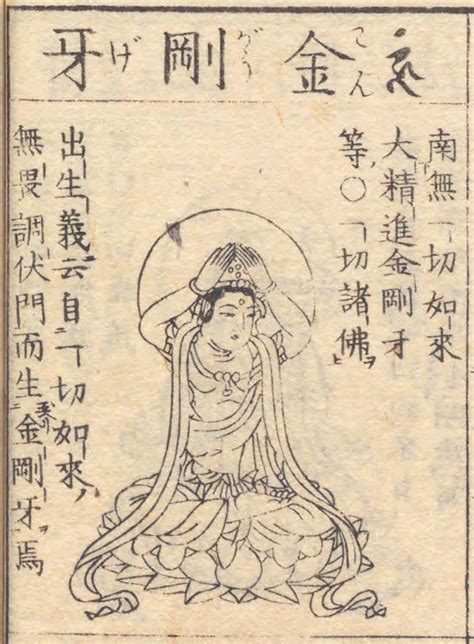 金剛牙
こんがうげ
南無一切如來
大精進金剛牙
等〇一切諸佛ヲ
出生義云自一切如來ノ
無畏調伏門而生金剛牙ヲ焉